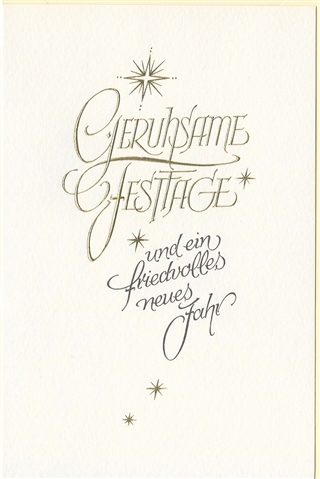 Geruhsame
Festtage
und ein
friedvolles
neues
Jahr